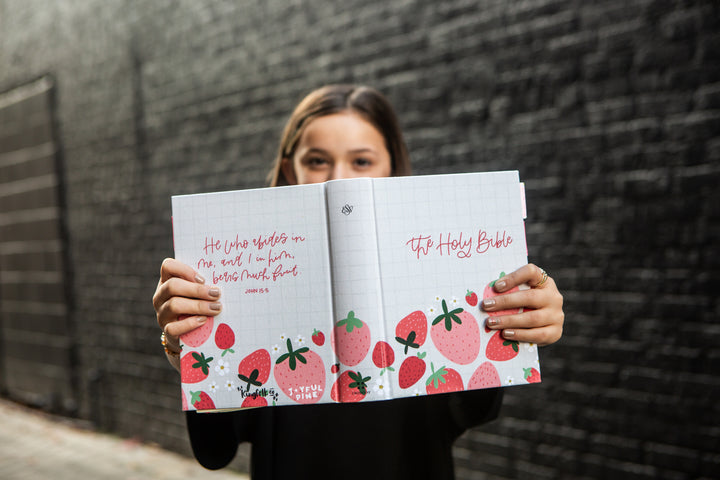 He who abides in
me, and I in him,
bears much fruit
JOHN 15:5
Kingfolk co
JOYFUL
PINE
ESV
the Holy Bible